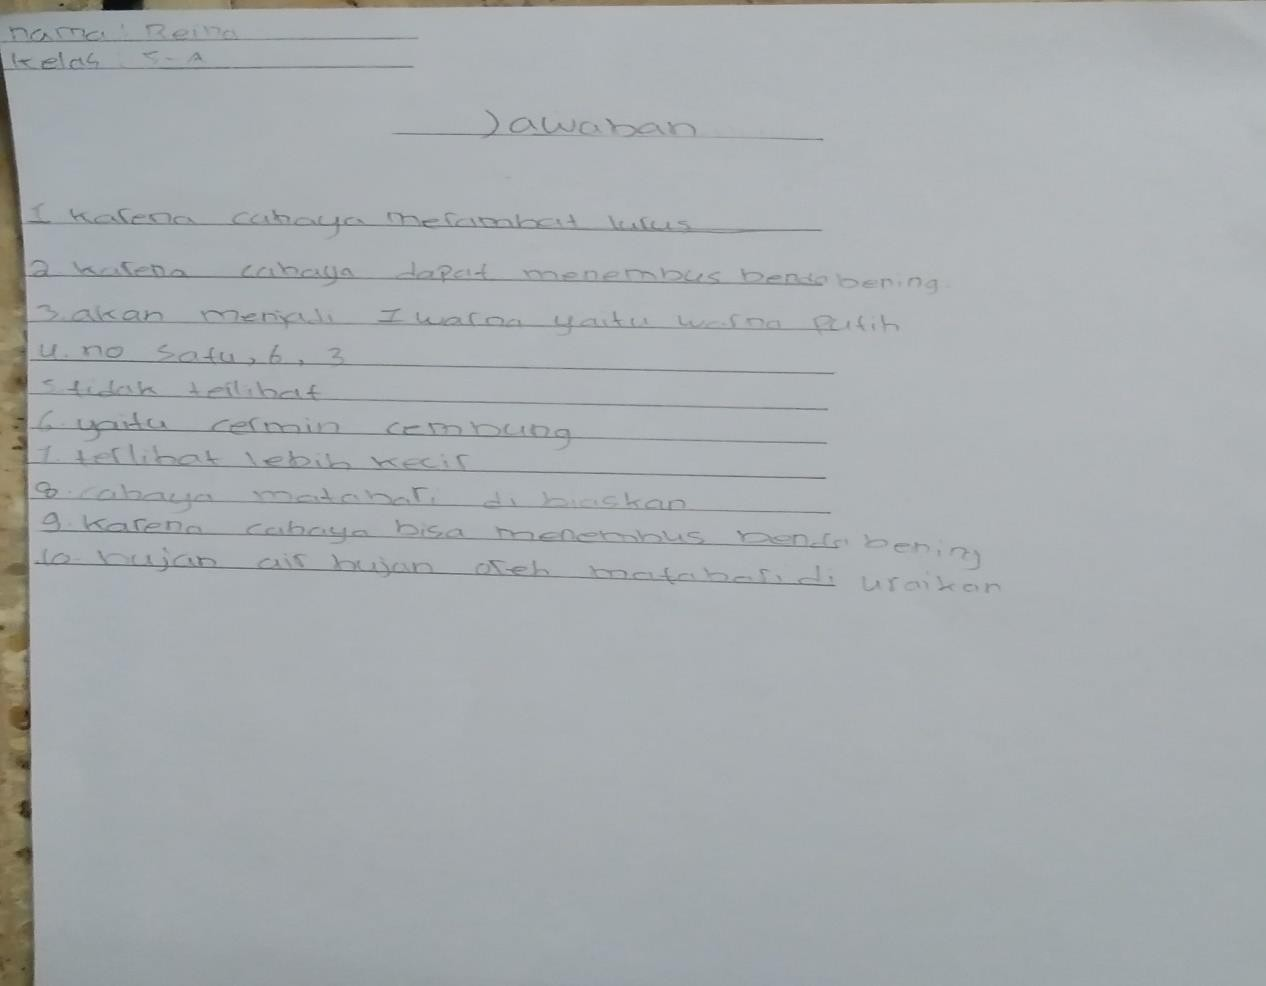 nama : Reina
kelas : 5-A
Jawaban
1 karena cahaya merambat lurus
2 karena cahaya dapat menembus benda bening.
3. akan menjadi 1 warna yaitu warna putih
4. no satu, 6, 3
5 tidak terlibat
6. yaitu cermin cembung
7. terlihat lebih kecil
8. cahaya matahari di biaskan
9. karena cahaya bisa menembus benda bening
10. hujan air hujan oleh matahari di uraikan